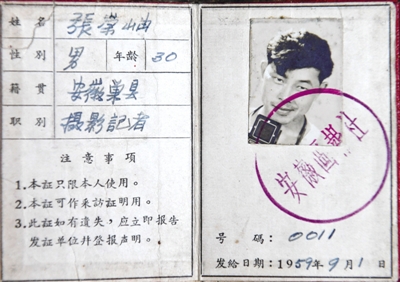 姓名 張崇岫
性別 男 年龄 30
籍貫 安徽巢县
职別 摄影記者
注意事項
1.本証只限本人使用。
2.本証可作采訪証明用。
3.此証如有遺失，应立即报告
发証单位并登报声明。
安徽画報社
号碼：0011
发給日期：1959年9月1日